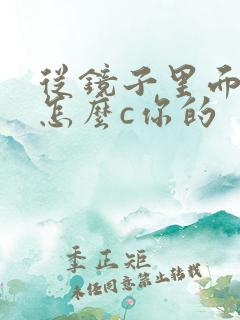 從鏡子里而
怎麼c你的
季正矩
未經同意禁止转载